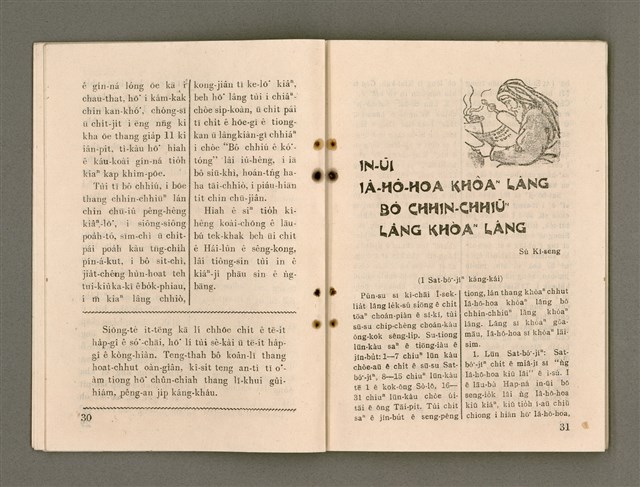 ê gín-ná lóng ōe kā i
chau-that, hō͘ i kám-kak
chin kan-khó͘, chóng-sī
ū chi̍t-ji̍t i ēng nn̄g ki
kha óe thang giáp 11 ki
iân-pit, tì-kàu hō͘ hiah
ê káu-koài gín-ná tio̍h
kiaⁿ kap khim-pōe.
Tùi tī bô chhiú, i bōe
thang chhin-chhiūⁿ lán
chin chū-iû pêng-hêng
kiâⁿ-lō͘, i siông-siông
poa̍h-tó, sīm-chì ū chi̍t-
pái poa̍h kàu tn̄g-chi̍h
pin-á-kut, i bô sit-chì,
jia̍t-chêng hùn-hoat teh
tuì-kiû ka-kī ê bo̍k-phiau,
i m̄ kiaⁿ lâng chhiò,
kong-jiân tī ke-lō͘ kiâⁿ,
beh hō͘ lâng tùi i chiâⁿ-
chòe si̍p-koàn, ū chi̍t pái
tī chi̍t ê hōe-gī ê tiong-
kan ū lâng kiàn-gī chhiáⁿ
i chòe "Bô chhiú ê kó͘-
tóng" lâi iú-hêng, i iā
bô siū-khì, hoán-tńg ha-
ha tāi-chhiò, i piáu-hiān
tit chin chū-jiân.
Hiah ê sîⁿ tio̍h ki-
hêng koài-chōng ê lāu-
bú tek-khak beh ū chi̍t
ê Hái-lûn ê sêng-kong,
lâi tiông-sin tùi in ê
kiáⁿ-jî phāu sin ê n̄g-
bāng.
Siōng-tè it-tēng kā lí chhōe chi̍t ê tē-it
ha̍p-gî ê só͘-chāi, hō͘ lí tùi sè-kài ū tē-it ha̍p-
gî ê kòng-hiàn. Teng-thah bô koân-lī thang
hoat-chhut oàn-giân, kî-si̍t teng an-tì tī o͘-
àm tiong hō͘ chûn-chiah thang lī-khui gûi-
hiám, pêng-an ji̍p káng-kháu.
30
IN-ŪI
IÂ-HÔ-HOA KHÒAⁿ LÂNG
BÔ CHHIN-CHHIŪⁿ
LÂNG KHÒAⁿ LÂNG
Sù Kì-seng
(I Sat-bó͘-jíⁿ kàng-kái)
Pún-su sī kì-chài Í-sek-
lia̍t lâng le̍k-sú siōng ê chi̍t
tōa choán-piàn ê sî-kî, tùi
sū-su chip-chèng choán-kàu
ông-kok sêng-li̍p. Su-tiong
lūn-kàu saⁿ ê tiōng-iàu ê
jîn-bu̍t: 1—7 chiuⁿ lūn kàu
chòe-āu ê chi̍t ê sū-su Sat-
bó͘-jíⁿ, 8—15 chiuⁿ lūn kàu
tē it ê kok-ông Sò-lô, 16—
31 chiuⁿ lūn-kàu chòe ûi-
tāi ê ông Tāi-pi̍t. Tùi chit
saⁿ ê jîn-bu̍t ê seng-pêng
tiong, lán thang khòaⁿ chhut
Iâ-hô-hoa khòaⁿ lâng bô
chhin-chhiūⁿ lâng khòaⁿ
lâng. Lâng sī khòaⁿ gōa-
māu, Iâ-hô-hoa sī khòaⁿ lāi-
sim.
1. Lūn Sat-bó͘-jíⁿ: Sat-
bó͘-jíⁿ chit ê miâ-jī sī "n̄g
Iâ-hô-hoa kiû lâi" ê ì-sù. I
ê lāu-bú Hap-ná in-ūi bô
seng-io̍k lâi n̄g Iâ-hô-hoa
kiû kiáⁿ, kiû tio̍h í-āu chiū
chiong i hiàn hō͘ Iâ-hô-hoa,
31